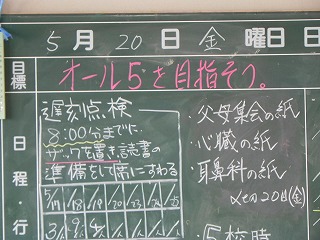 5月20日金曜日 日
目標
オール5を目指そう。
日程・行
遅刻点検
8:00分までに
サックを置き、読書の
準備をして席にすわる
・父母集会の紙
・心臓の紙
・耳鼻科の紙
〆切20日(金)
5校時